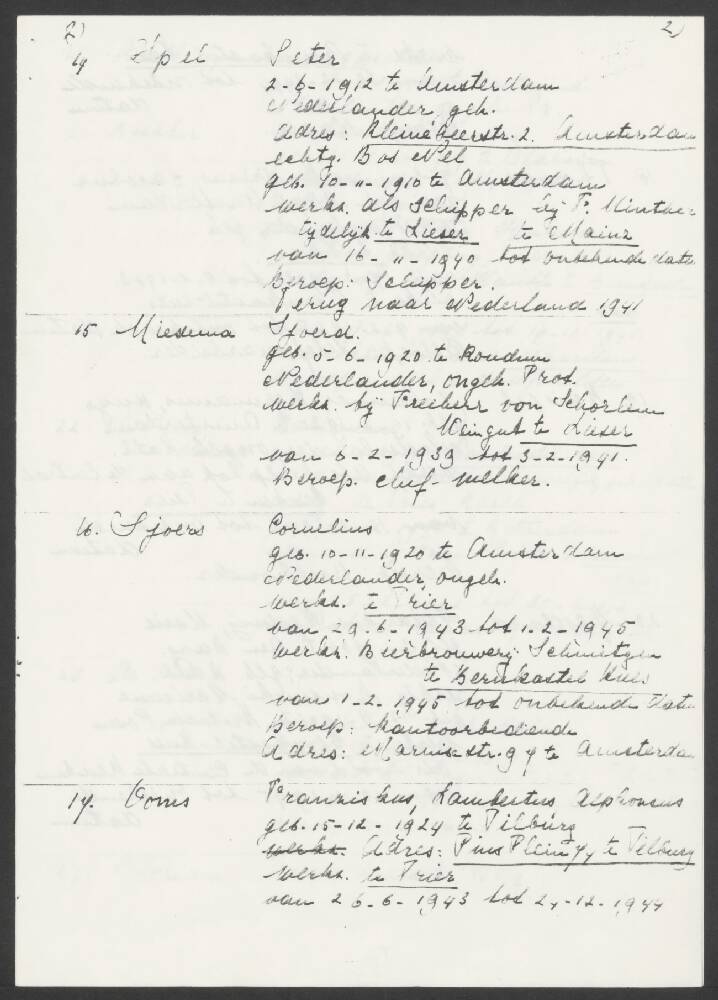 2) 2)
14 Pieter
2-6-1912 te Amsterdam
Nederlander, geh.
Adres: Kleine str. 2. Amsterdam
echtg. Bos Nel
geb. 10-11-1910 te Amsterdam
werkz. als Schipper bij F.
tijdelijk te Lieser te Mainz
van 16-11-1940 tot onbekende datu
Beroep: Schipper.
Terug naar Nederland 1941
15 Miedema Sjoerd.
geb. 5-6-1920 te Koudum
Nederlander, ongeh. Prot.
werkz. bij Freiherr von Schorlem
Weingut te Lieser
van 6-2-1939 tot 3-2-1941.
Beroep. chef-melker.
16. Sjoers Cornelius
geb. 10-11-1920 te Amsterdam
Nederlander, ongeh.
werkz. te Trier
van 29.6-1943 tot 1-2-1945
werkz. Bierbrouwerij Schmitzgen
te Bernkastel Kues
van 1-2.1945 tot onbekende datu
Beroep: Kantoorbediende
Adres: Marnixstr. 94 te Amsterda
17. Ooms Franziskus, Lambertus Alphonsus
geb. 15-12-1924 te Tilburg
werkz. Adres: Pius Plein 74 te Tilburg
werkz. te Trier
van 26-6-1943 tot 24-12-1944